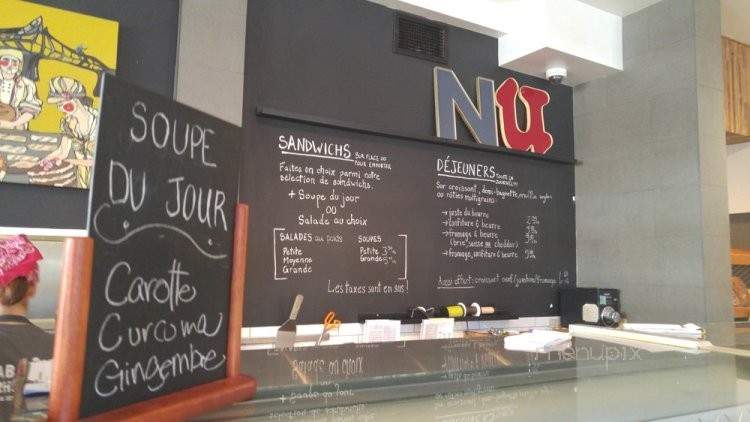 SOUPE
DU JOUR
Carotte
Curcuma
Gingembre
NU
SANDWICHS SUR PLACE OU
POUR EMPORTER
Faites un choix parmi notre
sélection de sandwichs.
+ Soupe du jour
OU
Salade au choix
SALADES au poids
Petite
Moyenne
Grande
SOUPES
Petite
Grande
Les taxes sont en sus!
DÉJEUNERS
Sur croissant, demi-baguette, muffin anglais
ou rôties multigrains:
→ juste du beurre
→ confiture & beurre
→ fromage & beurre
(brie, suisse ou cheddar)
→ fromage, confiture & beurre
Aussi offert: croissant oeuf/jambon/fromage
menupix